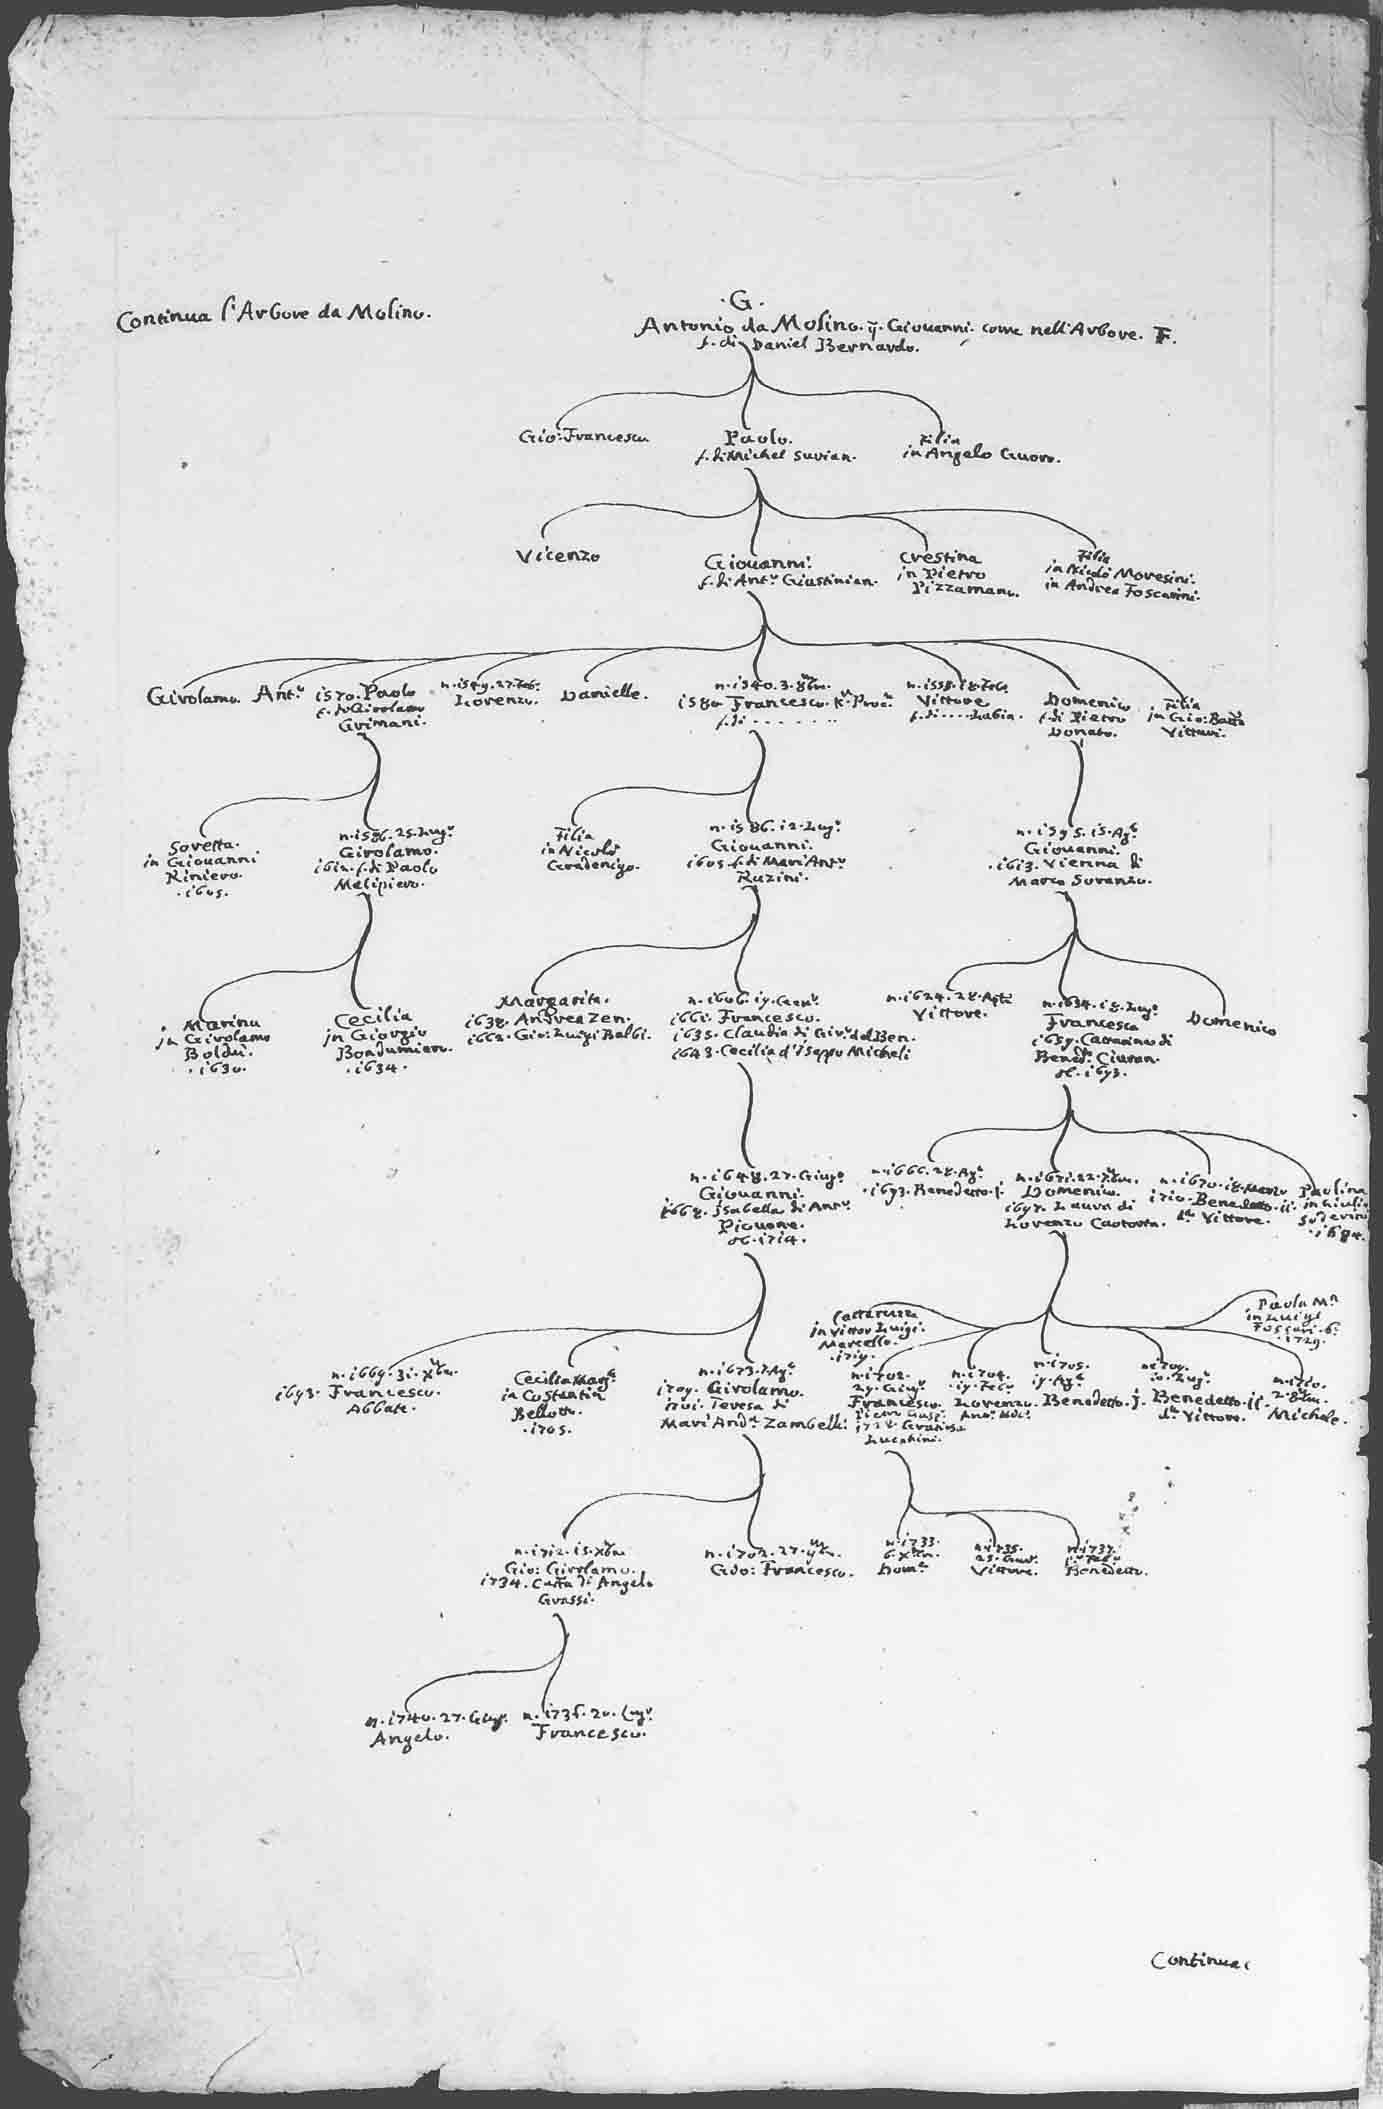 Continua l'Arbore da Molino.
.G.
Antonio da Molino. q. Giovanni. come nell'Arbore. F.
f. di Daniel Bernardo.
Gio: Francesco
Paolo.
f. di Michel Surian.
Filia
in Angelo Guoro.
Vicenzo
Giovanni.
f. di Antº Giustinian.
Crestina
in Pietro
Pizzamano.
Filia
in Nicolò Moresini.
in Andrea Foscarini.
Girolamo.
Antº
1570. Paolo
f. di Girolamo
Grimani.
n. 1549. 27. Febº
Lorenzo.
Danielle.
n. 1540. 3. 8bre.
1580. Francesco. Kr. Procr.
f. di . . . . . . . .
n. 1558. 18. Febº
Vittore
f. di .... Labia.
Domenico
f. di Pietro
Donato.
Filia
in Gio: Batta
Vitturi.
Soretta.
in Giovanni
Riniero.
.1605.
n. 1586. 25. Lugº
Girolamo.
1612. f. di Paolo
Malipiero.
Filia
in Nicolò
Gradenigo.
n. 1586. 12. Lugº
Giovanni.
1605. f. di Marc'Antº
Ruzini.
n. 1595. 15. Agº
Giovanni.
.1613. Vienna di
Marco Soranzo.
Marina
in Girolamo
Boldù.
.1630.
Cecilia
in Giorgio
Bondumiero.
.1634.
Margarita.
1638. Andrea Zen.
1662. Gio: Luigi Balbi.
n. 1606. 19. Gennº
1661. Francesco.
1635. Claudia di Girº dal Ben.
1643. Cecilia d'Iseppo Micheli
n. 1624. 28. Aple
Vittore.
n. 1634. 18. Lugº
Francesco
1659. Cattarina di
Bened. Ciuran.
ob. 1693.
Domenico
n. 1648. 27. Giugº
Giovanni.
1668. Isabella di Antº
Piovene.
ob. 1714.
n. 1666. 28. Agº
.1693. Benedetto. j.
n. 1671. 22. 7bre.
Domenico.
1697. Laura di
Lorenzo Caotorta.
n. 1670. 18. Marzo
1710. Benedetto. ij.
do Vittore.
Paolina
in Giulio
Soderini
.1684.
Cattaruzza
in Vittor Luigi.
Marcello.
.1719.
Paola Ma
in Luigi
Foscari. 6º
.1729.
n. 1669. 31. Xbre.
1693. Francesco.
Abbate.
Cecilia Margª
in Costantin
Bellotto.
.1705.
n. 1673. Agº
1709. Girolamo.
1701. Teresa di
Marc'Andª Zambelli.
n. 1702.
29. Giugº
Francesco.
Pietro Gasp.
1728. Gratiosa
Lucchini.
n. 1704.
.19. Febº
Lorenzo.
n. 1705.
19. Agº
Benedetto. j.
n. 1709.
10. Lugº
Benedetto. ij.
do Vittore.
n. 1710.
2. 8bre.
Michele.
n. 1712. 15. Xbre
Gio: Girolamo.
1734. Catta di Angelo
Grassi.
n. 1702. 27. 9bre.
Gio: Francesco.
n. 1733.
6. Xbre.
Domº
n. 1735.
25. Gennº
Vittore.
n. 1737.
Febº
Benedetto.
n. 1740. 27. Giugº
Angelo.
n. 1736. 20. Lugº
Francesco.
Continua: